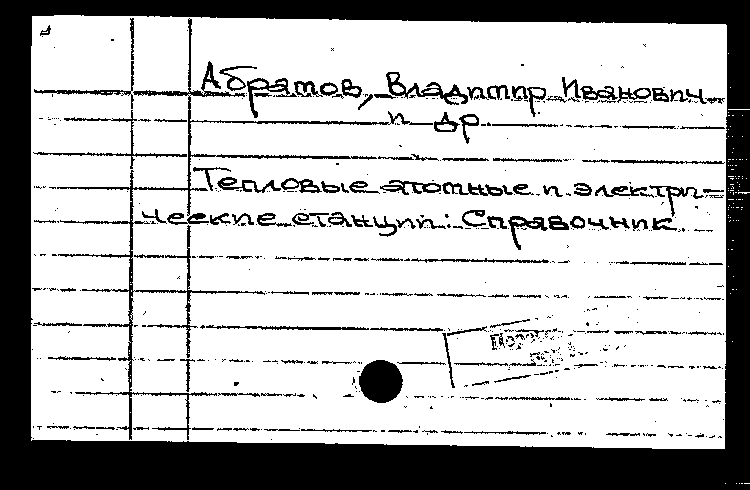 Абрамов, Владимир Иванович
и др.
Тепловые атомные и электри-
ческие станции: Справочник